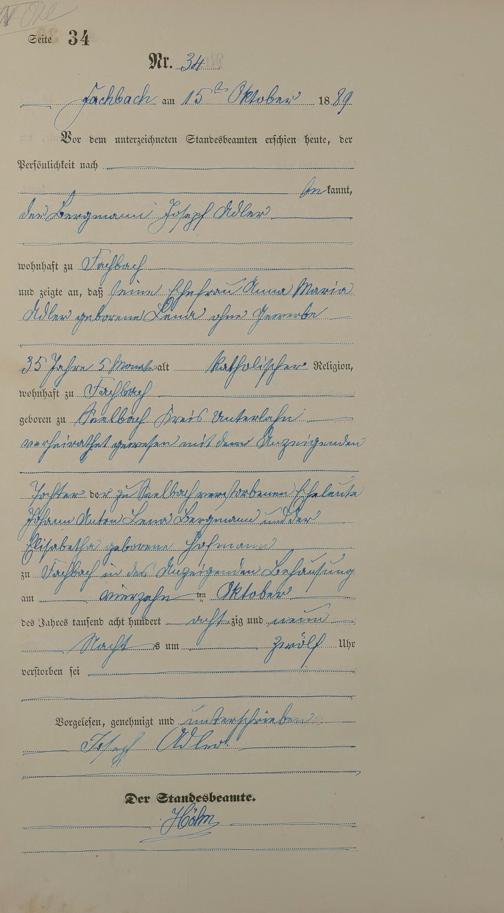 Seite 34
Nr. 34
Fachbach am 15ten Oktober 1889
Vor dem unterzeichneten Standesbeamten erschien heute, der
Persönlichkeit nach
bekannt,
der Bergmann Joseph Adler
wohnhaft zu Fachbach
und zeigte an, daß seine Ehefrau Anna Maria
Adler geborene Lena ohne Gewerbe
35 Jahre 5 Monate alt katholischer Religion,
wohnhaft zu Fachbach
geboren zu Seelbach Kreis Unterlahn
verheirathet gewesen mit dem Anzeigenden
Tochter der zu Seelbach verstorbenen Eheleute
Johann Anton Lena Bergmann und der
Elisabetha geborene Hofmann
zu Fachbach in des Anzeigenden Behausung
am vierzehn ten Oktober
des Jahres tausend acht hundert achtzig und neun
Nachts um zwölf Uhr
verstorben sei
Vorgelesen, genehmigt und unterschrieben
Joseph Adler
Der Standesbeamte.